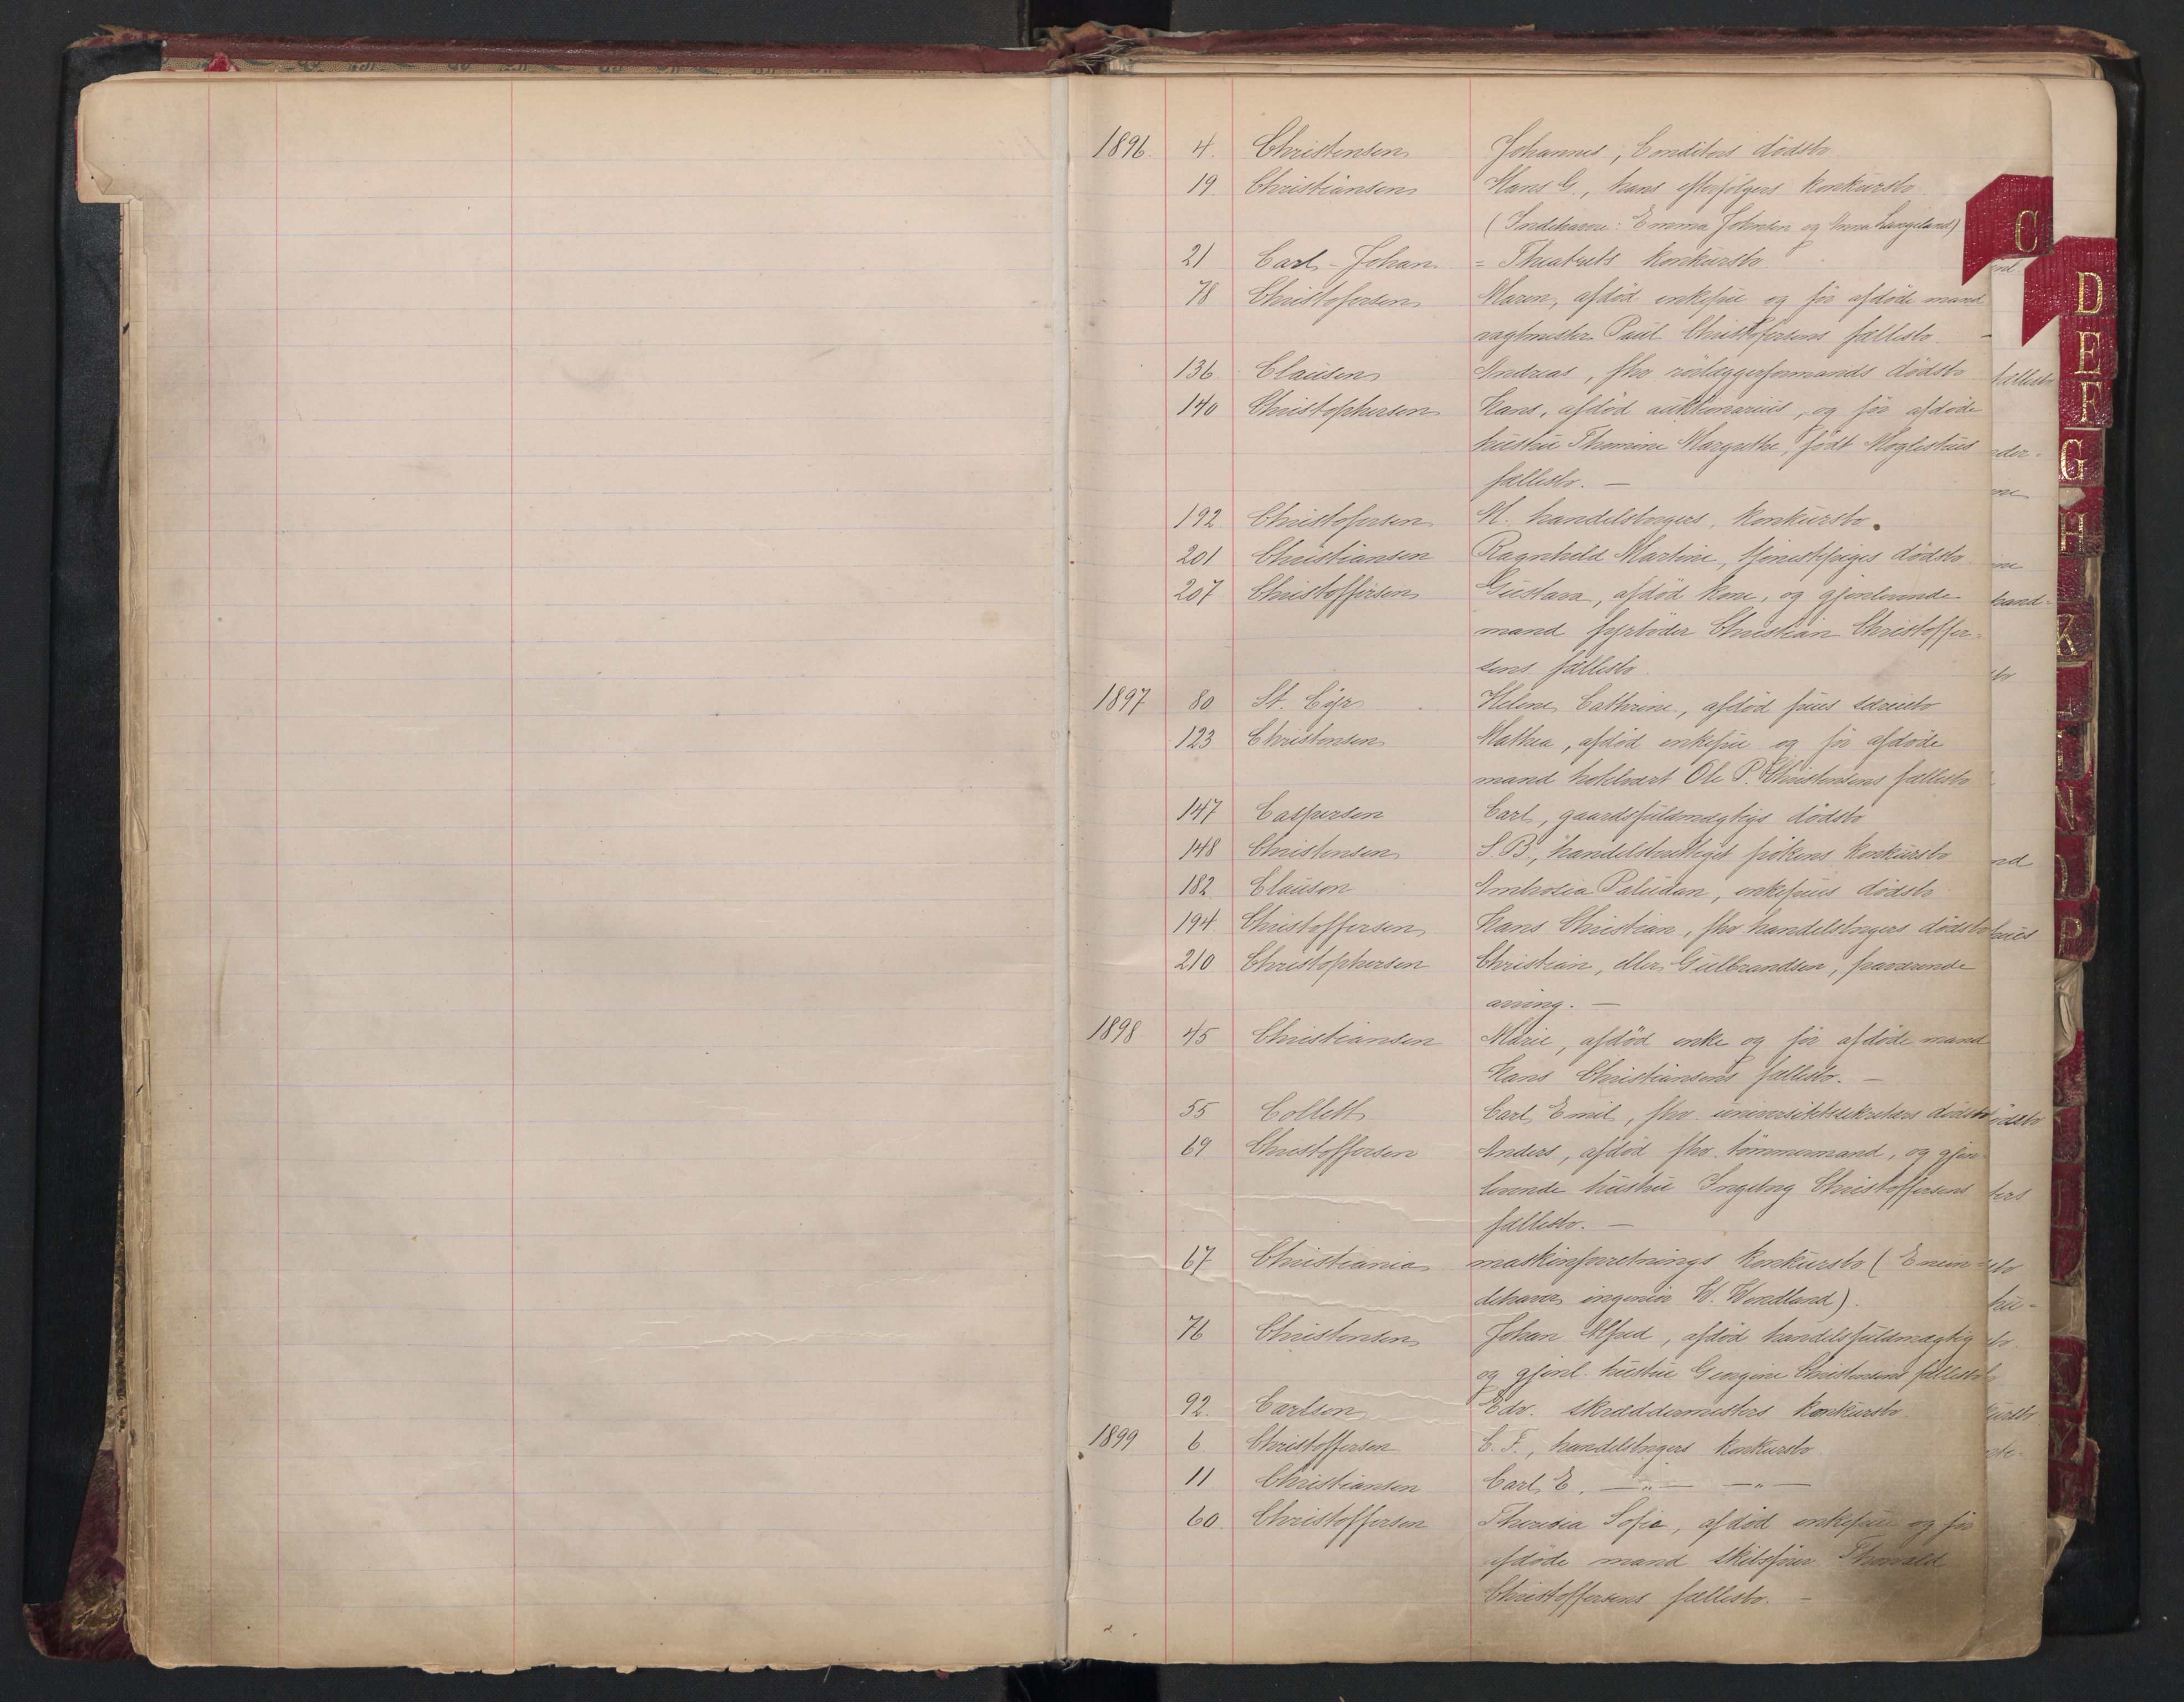 1896. 4. Christensen Johannes, Conditors dødsbo
19. Christiansen Hans G., hans efterfølgers konkursbo
(Indehavere: Emma Johnsen og Anna Langeland)
21 Carl-Johan = Theatrets konkursbo.
78 Christofersen Maren, afdød enkefrue og før afdøde mand
vagtmester Paul Christofersens fællesbo. —
136 Clausen Andreas, fhv rørlæggerformands dødsbo
140 Christophersen Hans, afdød auktionarius, og før afdøde
hustru Thomine Margrethe, født Moglestues
fællesbo. —
192 Christofersen M. handelsborgers, konkursbo.
201 Christiansen Ragnhild Martine, tjenestepiges dødsbo
207 Christoffersen Gustava, afdød kone, og gjenlevende
mand fyrbøder Christian Christoffer-
sens fællesbo
1897 80 St. Cyr Helene Cathrine, afdød frues særeiebo
123 Christensen Mathea, afdød enkefrue og før afdøde
mand hotelvært Ole P. Christensens fællesbo
147 Caspersen Carl, gaardsfuldmægtigs dødsbo
148 Christensen S. B., handelsberettiget frøkens konkursbo
182 Clauson Ambrosia Paludan, enkefrues dødsbo
194 Christoffersen Hans Christian, fhv handelsborgers dødsbo
210 Christophersen Christian, eller Gulbrandsen, fraværende
arving. —
1898 45 Christiansen Marie, afdød enke og før afdøde mand
Hans Christiansens fællesbo. —
55 Collett Carl Emil, fhv. universitetssekretærs dødsbo
69 Christoffersen Anders, afdød fhv. tømmermand, og gjen-
levende hustru Ingeborg Christoffersens
fællesbo. —
67 Christiania maskinforretnings konkursbo (Enein-
dehaver ingeniør W. Wendland).
76 Christensen Johan Alfred, afdød handelsfuldmægtig
og gjenl. hustru Georgine Christensens fællesbo
92. Carlsen Edv. skræddermesters konkursbo.
1899 6 Christoffersen C. F., handelsborgers konkursbo
11 Christiansen Carl E. —„— —„—
60 Christoffersen Theresia Sofie, afdød enkefrue og før
afdøde mand skibsfører Thorvald
Christoffersens fællesbo. —
C
D
E
F
G
H
K
N
P